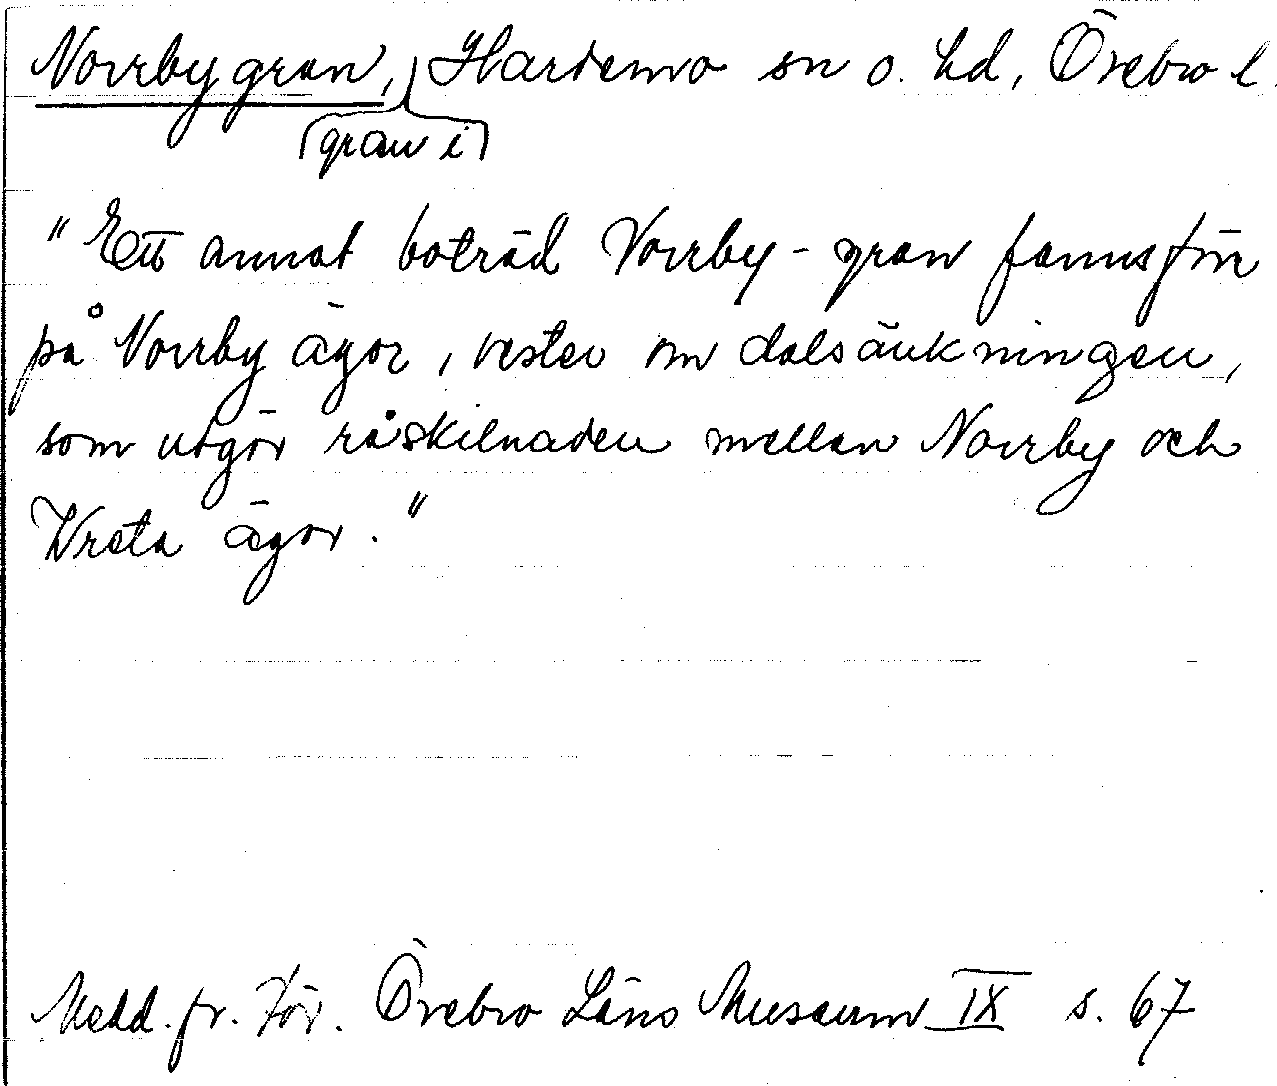 Norrbygran, Hardemo sn o. hd, Örebro l.
(gran i)
"Ett annat boträd Norrby-gran fanns förr
på Norrby ägor, vester om dalsänkningen,
som utgör råskilnaden mellan Norrby och
Wreta ägor."
Medd. fr. För. Örebro Läns Museum IX s. 67